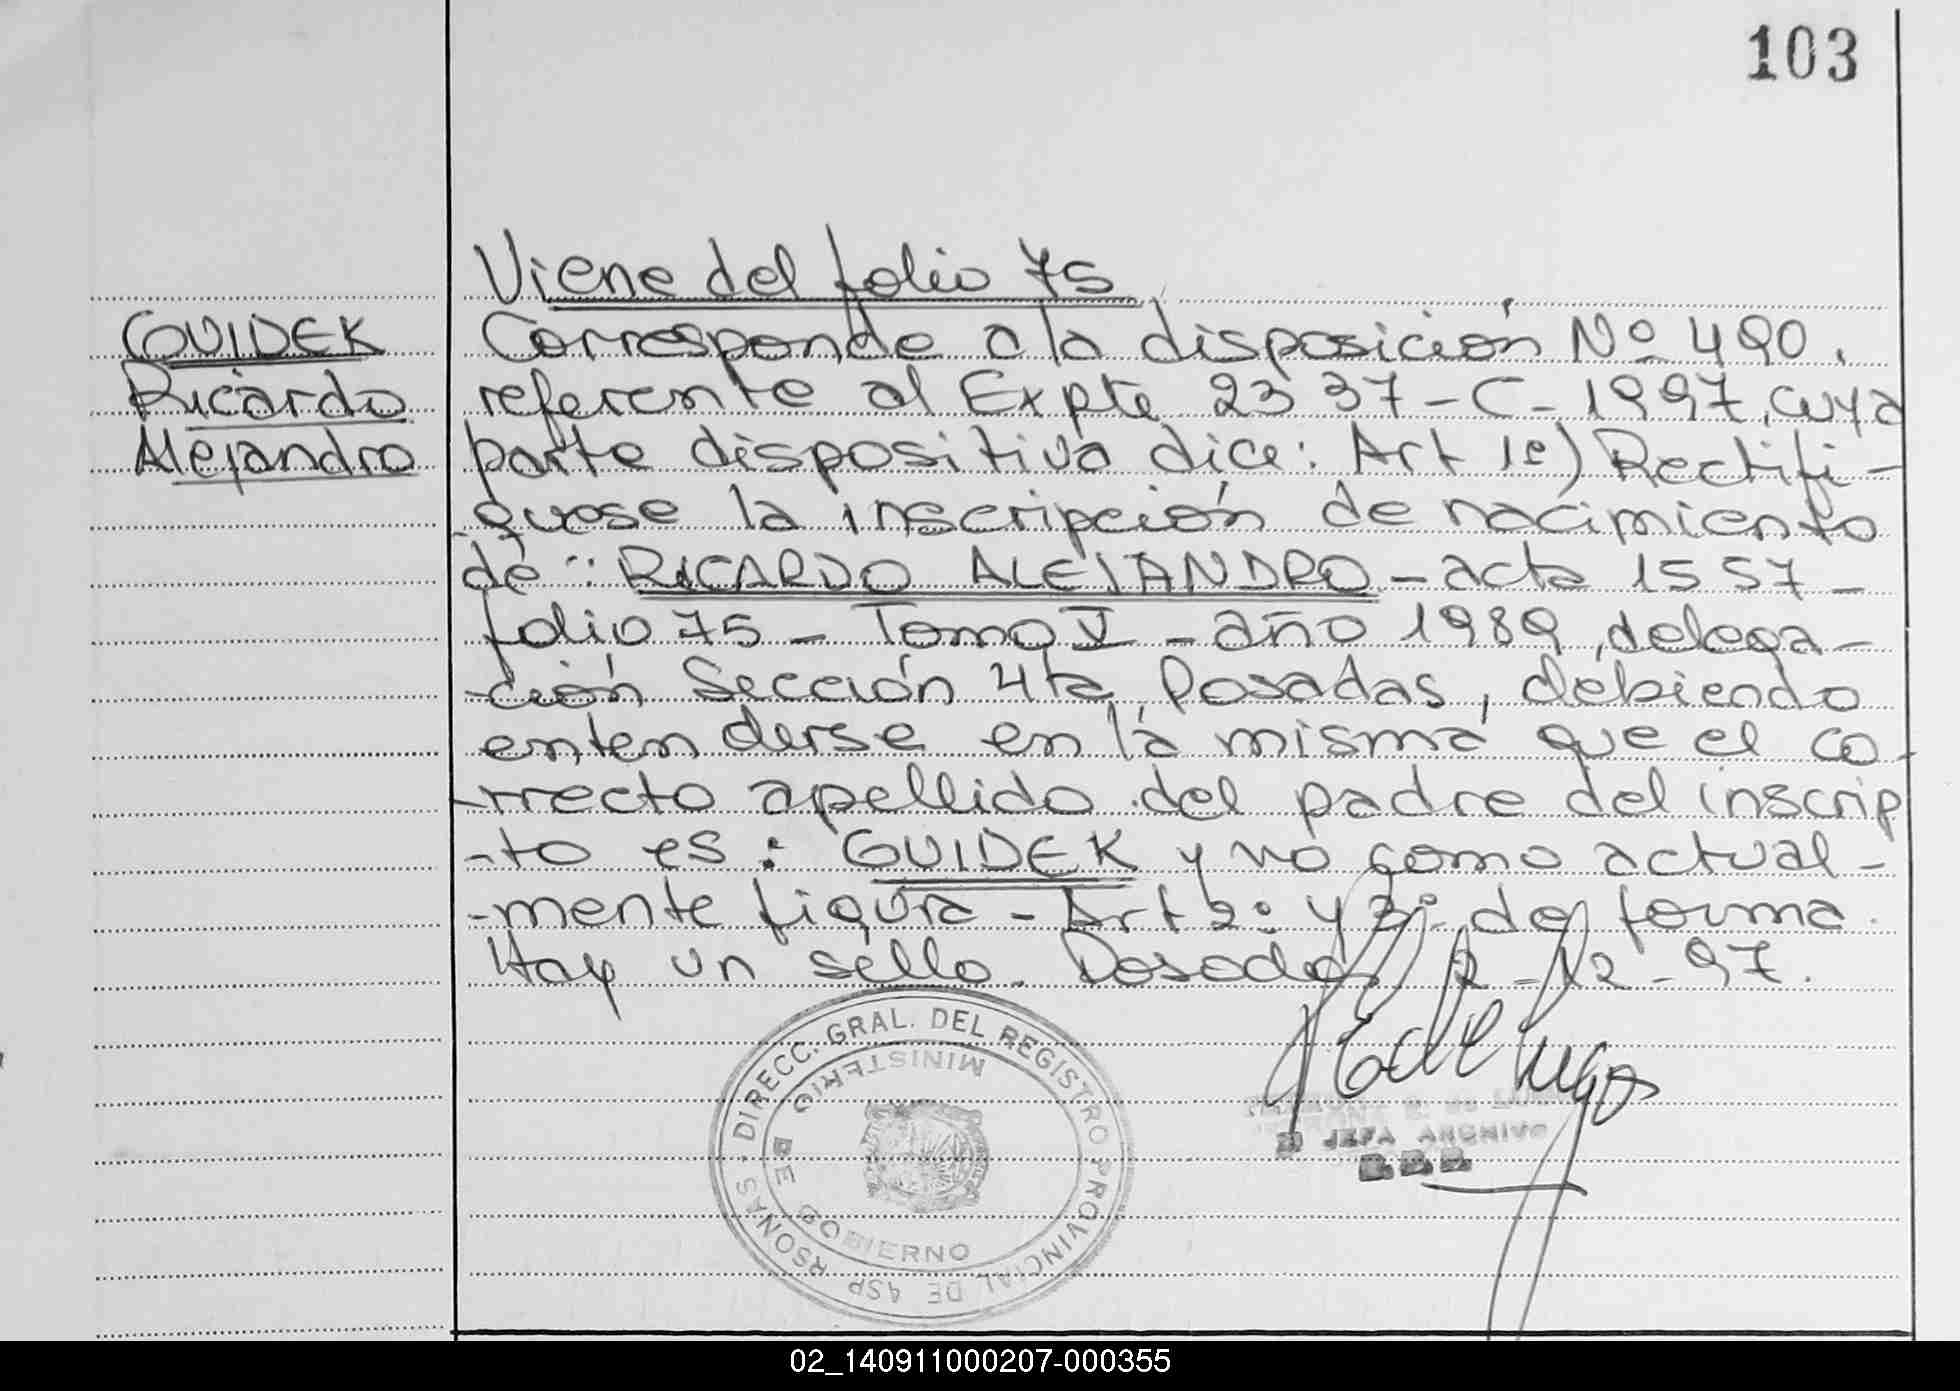 103
Viene del folio 75
GUIDEK
Ricardo
Alejandro
Corresponde a la disposición Nº 490.
referente al Expte 2337-C-1997, cuya
parte dispositiva dice: Art 1º) Rectifi-
quese la inscripción de nacimiento
de: RICARDO ALEJANDRO - acta 1557 -
folio 75 - Tomo V - año 1989, delega-
-ción Sección 4ta Posadas, debiendo
entenderse en la misma que el co-
-rrecto apellido del padre del inscrip
-to es: GUIDEK y no como actual-
-mente figura - Art 2º y 3º de forma.
Hay un sello. Posadas, 2-12-97.
DIRECC. GRAL. DEL REGISTRO PROVINCIAL DE
MINISTERIO DE GOBIERNO
JEFA ARCHIVO
02_140911000207-000355